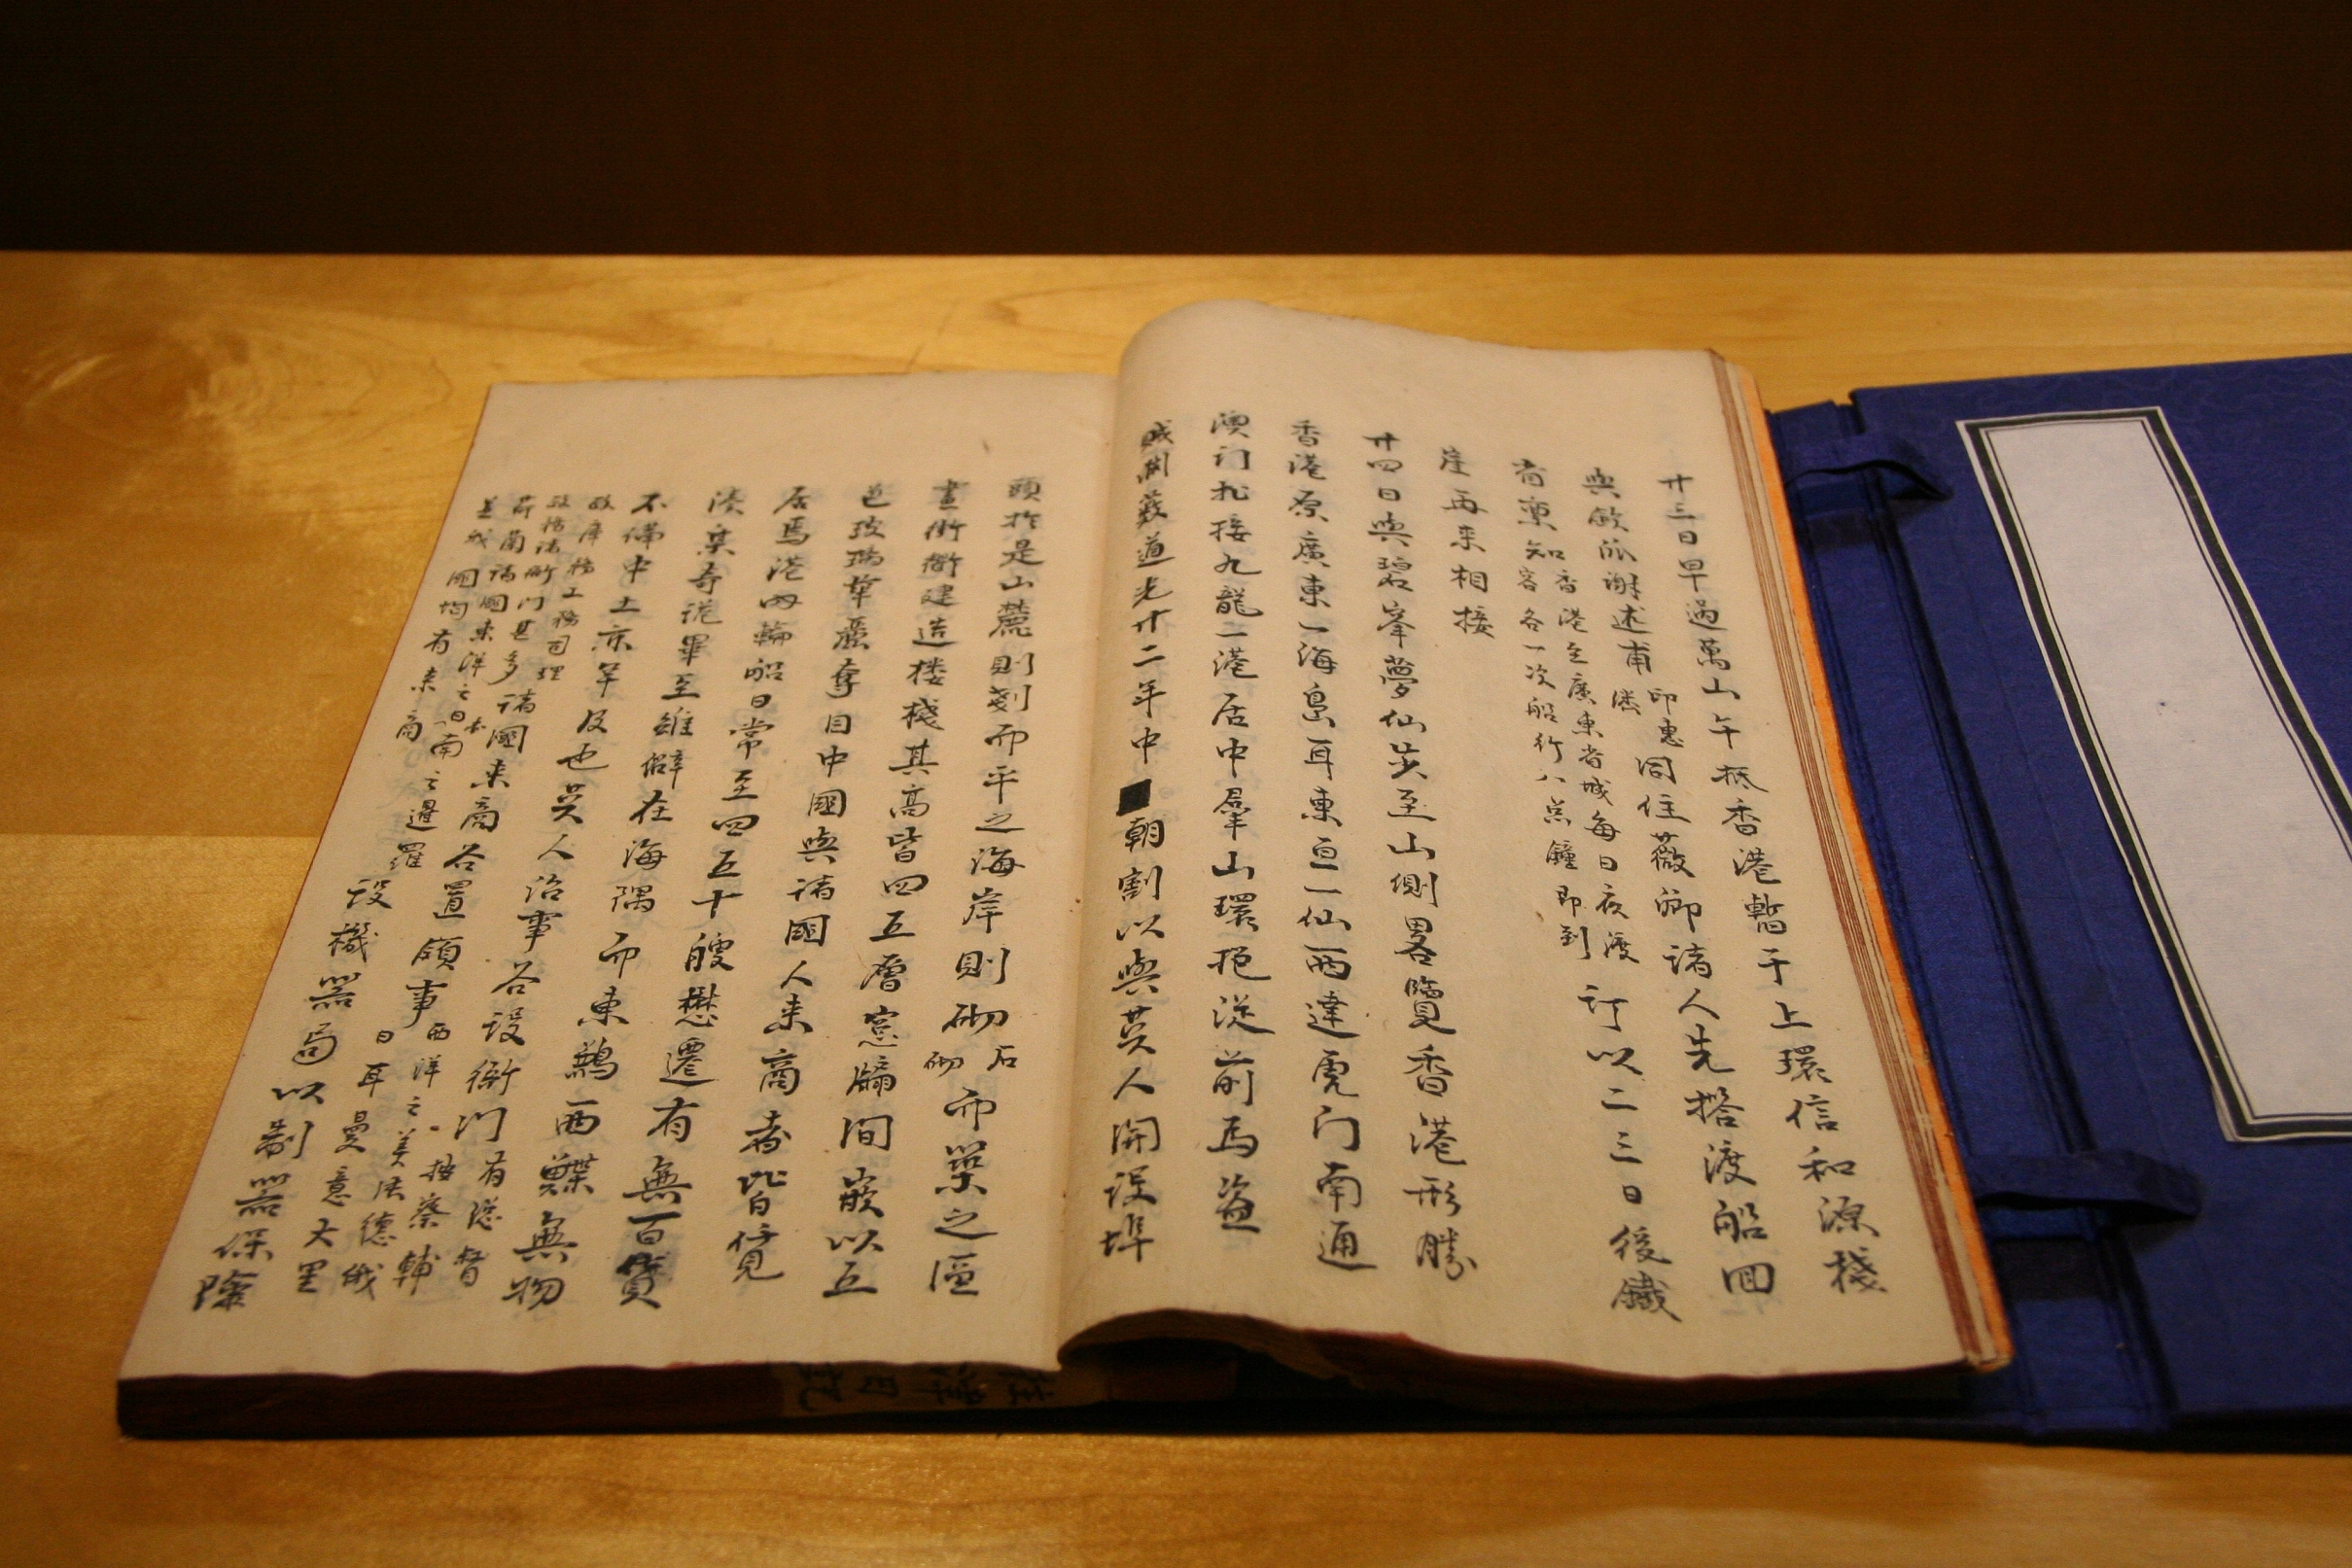 廿三日早過萬山午抵香港暫于上環信和源棧
與敝脈謝述甫印惠僯同住薇卿諸人先搭渡船回
省東知香港至廣東省城每日夜渡客各一次船行八点鐘即到訂以二三日後鐵
崖再來相接
廿四日與碧峯夢仙步至山側畧覽香港形勝
香港原廣東一海島耳東亘一仙西達虎门南通
澳门北接九龍一港居中羣山環抱從前馬盜
道光廿二年中朝割以與英人開設埠
頭於是山麓則剗而平之海岸則砌石砌而築之區
畫街衢建造楼棧其高皆四五層窓牖间嵌以五
色玻璃華麗奪目中國與諸國人来商者皆僦
居焉港內輪船日常至四五十艘懋遷有無百貨
湊集奇詭畢至雖僻在海隅而東鶼西鰈無物
不備中土亦罕及也英人治事各设衙门有总督按察輔
政庫務工務司理
政務法衙门甚多諸國来商各置領事西洋之美法德俄
荷蘭諸國東洋之日本南之暹羅日耳曼意大里
並我國均有来商设機器局以制器保險